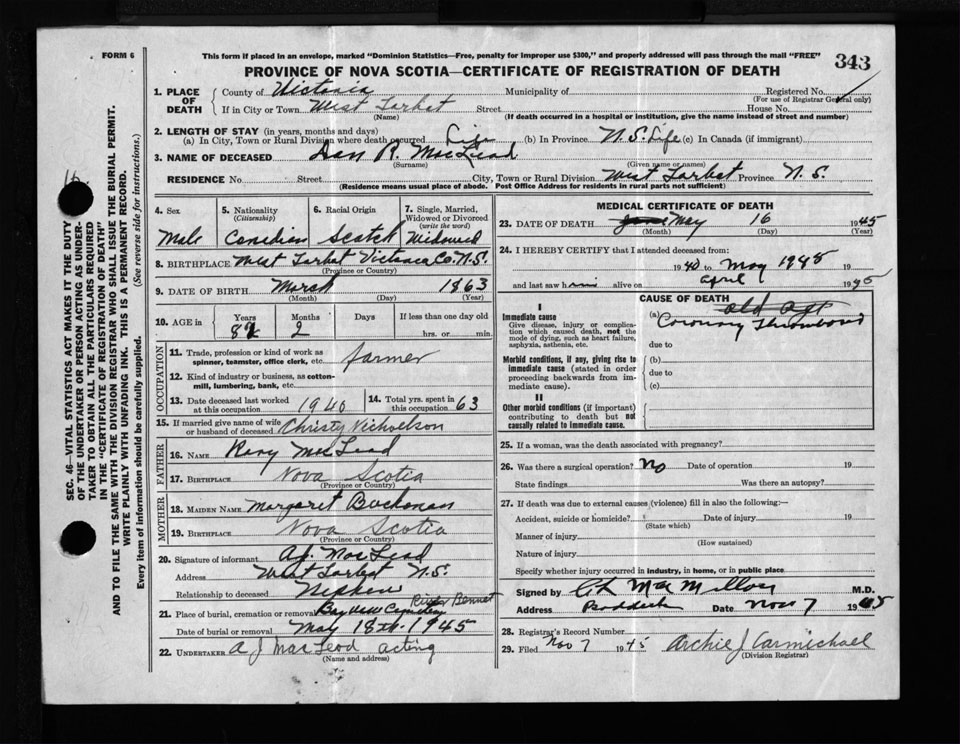 FORM 6
This form if placed in an envelope, marked "Dominion Statistics—Free, penalty for improper use $300," and properly addressed will pass through the mail "FREE"
343
PROVINCE OF NOVA SCOTIA—CERTIFICATE OF REGISTRATION OF DEATH
1. PLACE OF DEATH
County of Victoria Municipality of Registered No.
(For use of Registrar General only)
If in City or Town West Tarbot Street House No.
(Name) (If death occurred in a hospital or institution, give the name instead of street and number)
2. LENGTH OF STAY (in years, months and days)
(a) In City, Town or Rural Division where death occurred Life (b) In Province N.S. Life (c) In Canada (if immigrant)
3. NAME OF DECEASED Dan R. MacLeod
(Surname) (Given name or names)
RESIDENCE No. Street City, Town or Rural Division West Tarbot Province N.S.
(Residence means usual place of abode. Post Office Address for residents in rural parts not sufficient)
4. Sex 5. Nationality (Citizenship) 6. Racial Origin 7. Single, Married, Widowed or Divorced (write the word)
Male Canadian Scotch Widowed
8. BIRTHPLACE West Tarbot Victoria Co. N.S.
(Province or Country)
9. DATE OF BIRTH March 1863
(Month) (Day) (Year)
10. AGE in Years Months Days If less than one day old
82 2 hrs. or min.
OCCUPATION
11. Trade, profession or kind of work as spinner, teamster, office clerk, etc. farmer
12. Kind of industry or business, as cotton-mill, lumbering, bank, etc.
13. Date deceased last worked at this occupation 1940 14. Total yrs. spent in this occupation 63
15. If married give name of wife or husband of deceased Christy Nicholson
FATHER
16. NAME Rory MacLeod
17. BIRTHPLACE Nova Scotia
(Province or Country)
MOTHER
18. MAIDEN NAME Margaret Buchanan
19. BIRTHPLACE Nova Scotia
(Province or Country)
20. Signature of informant A.J. MacLeod
Address West Tarbot N.S.
Relationship to deceased Nephew
21. Place of burial, cremation or removal Bay View Cemetery River Bennet
Date of burial or removal May 18th. 1945
22. UNDERTAKER A J MacLeod acting
(Name and address)
MEDICAL CERTIFICATE OF DEATH
23. DATE OF DEATH May 16 1945
(Month) (Day) (Year)
24. I HEREBY CERTIFY that I attended deceased from:
1940 to May 1945 19
and last saw him alive on April 1 1945
CAUSE OF DEATH
I
Immediate cause
Give disease, injury or complication which caused death, not the mode of dying, such as heart failure, asphyxia, asthenia, etc.
(a) old age
Coronary Thrombosis
due to
Morbid conditions, if any, giving rise to immediate cause (stated in order proceeding backwards from immediate cause).
(b)
due to
(c)
II
Other morbid conditions (if important) contributing to death but not causally related to immediate cause.
25. If a woman, was the death associated with pregnancy?
26. Was there a surgical operation? No Date of operation 19
State findings Was there an autopsy?
27. If death was due to external causes (violence) fill in also the following:—
Accident, suicide or homicide? Date of injury 19
(State which)
Manner of injury
(How sustained)
Nature of injury
Specify whether injury occurred in industry, in home, or in public place
Signed by C L MacMillan M.D.
Address Baddeck Date Nov 7 1945
28. Registrar's Record Number
29. Filed Nov 7 1945 Archie J Carmichael
(Division Registrar)
SEC. 46—VITAL STATISTICS ACT MAKES IT THE DUTY
OF THE UNDERTAKER OR PERSON ACTING AS UNDERTAKER TO OBTAIN ALL THE PARTICULARS REQUIRED
IN THE "CERTIFICATE OF REGISTRATION OF DEATH"
AND TO FILE THE SAME WITH THE DIVISION REGISTRAR WHO SHALL ISSUE THE BURIAL PERMIT.
WRITE PLAINLY WITH UNFADING INK. THIS IS A PERMANENT RECORD.
Every item of information should be carefully supplied. (See reverse side for instructions.)